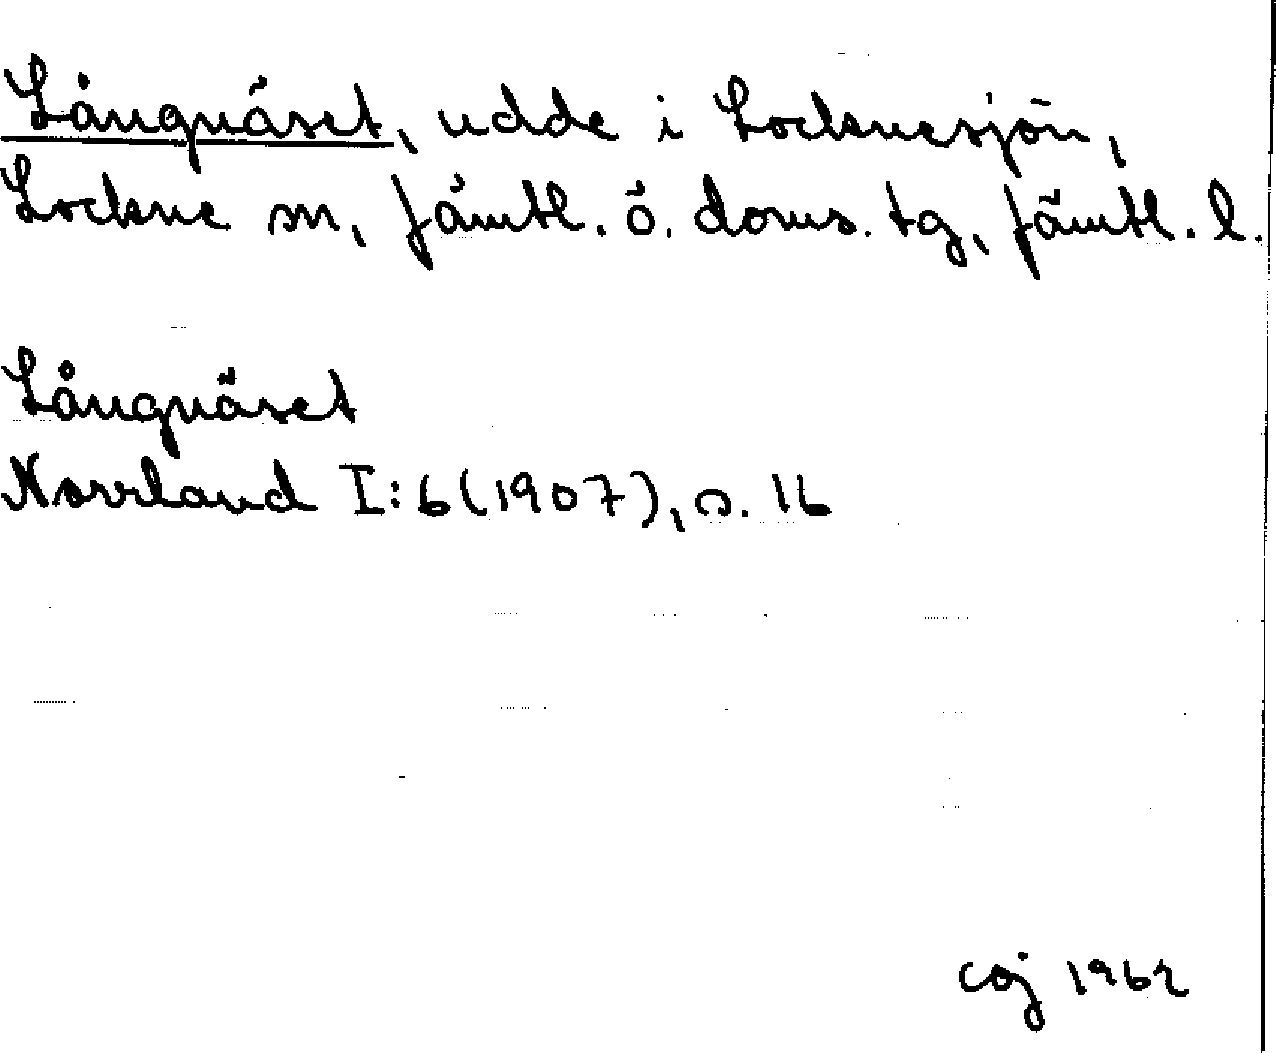 Långnäset, udde i Locknesjön,
Lockne sn, Jämtl. ö. doms. tg, Jämtl. l.
Långnäset
Norrland I:6(1907), s. 16
coj 1962